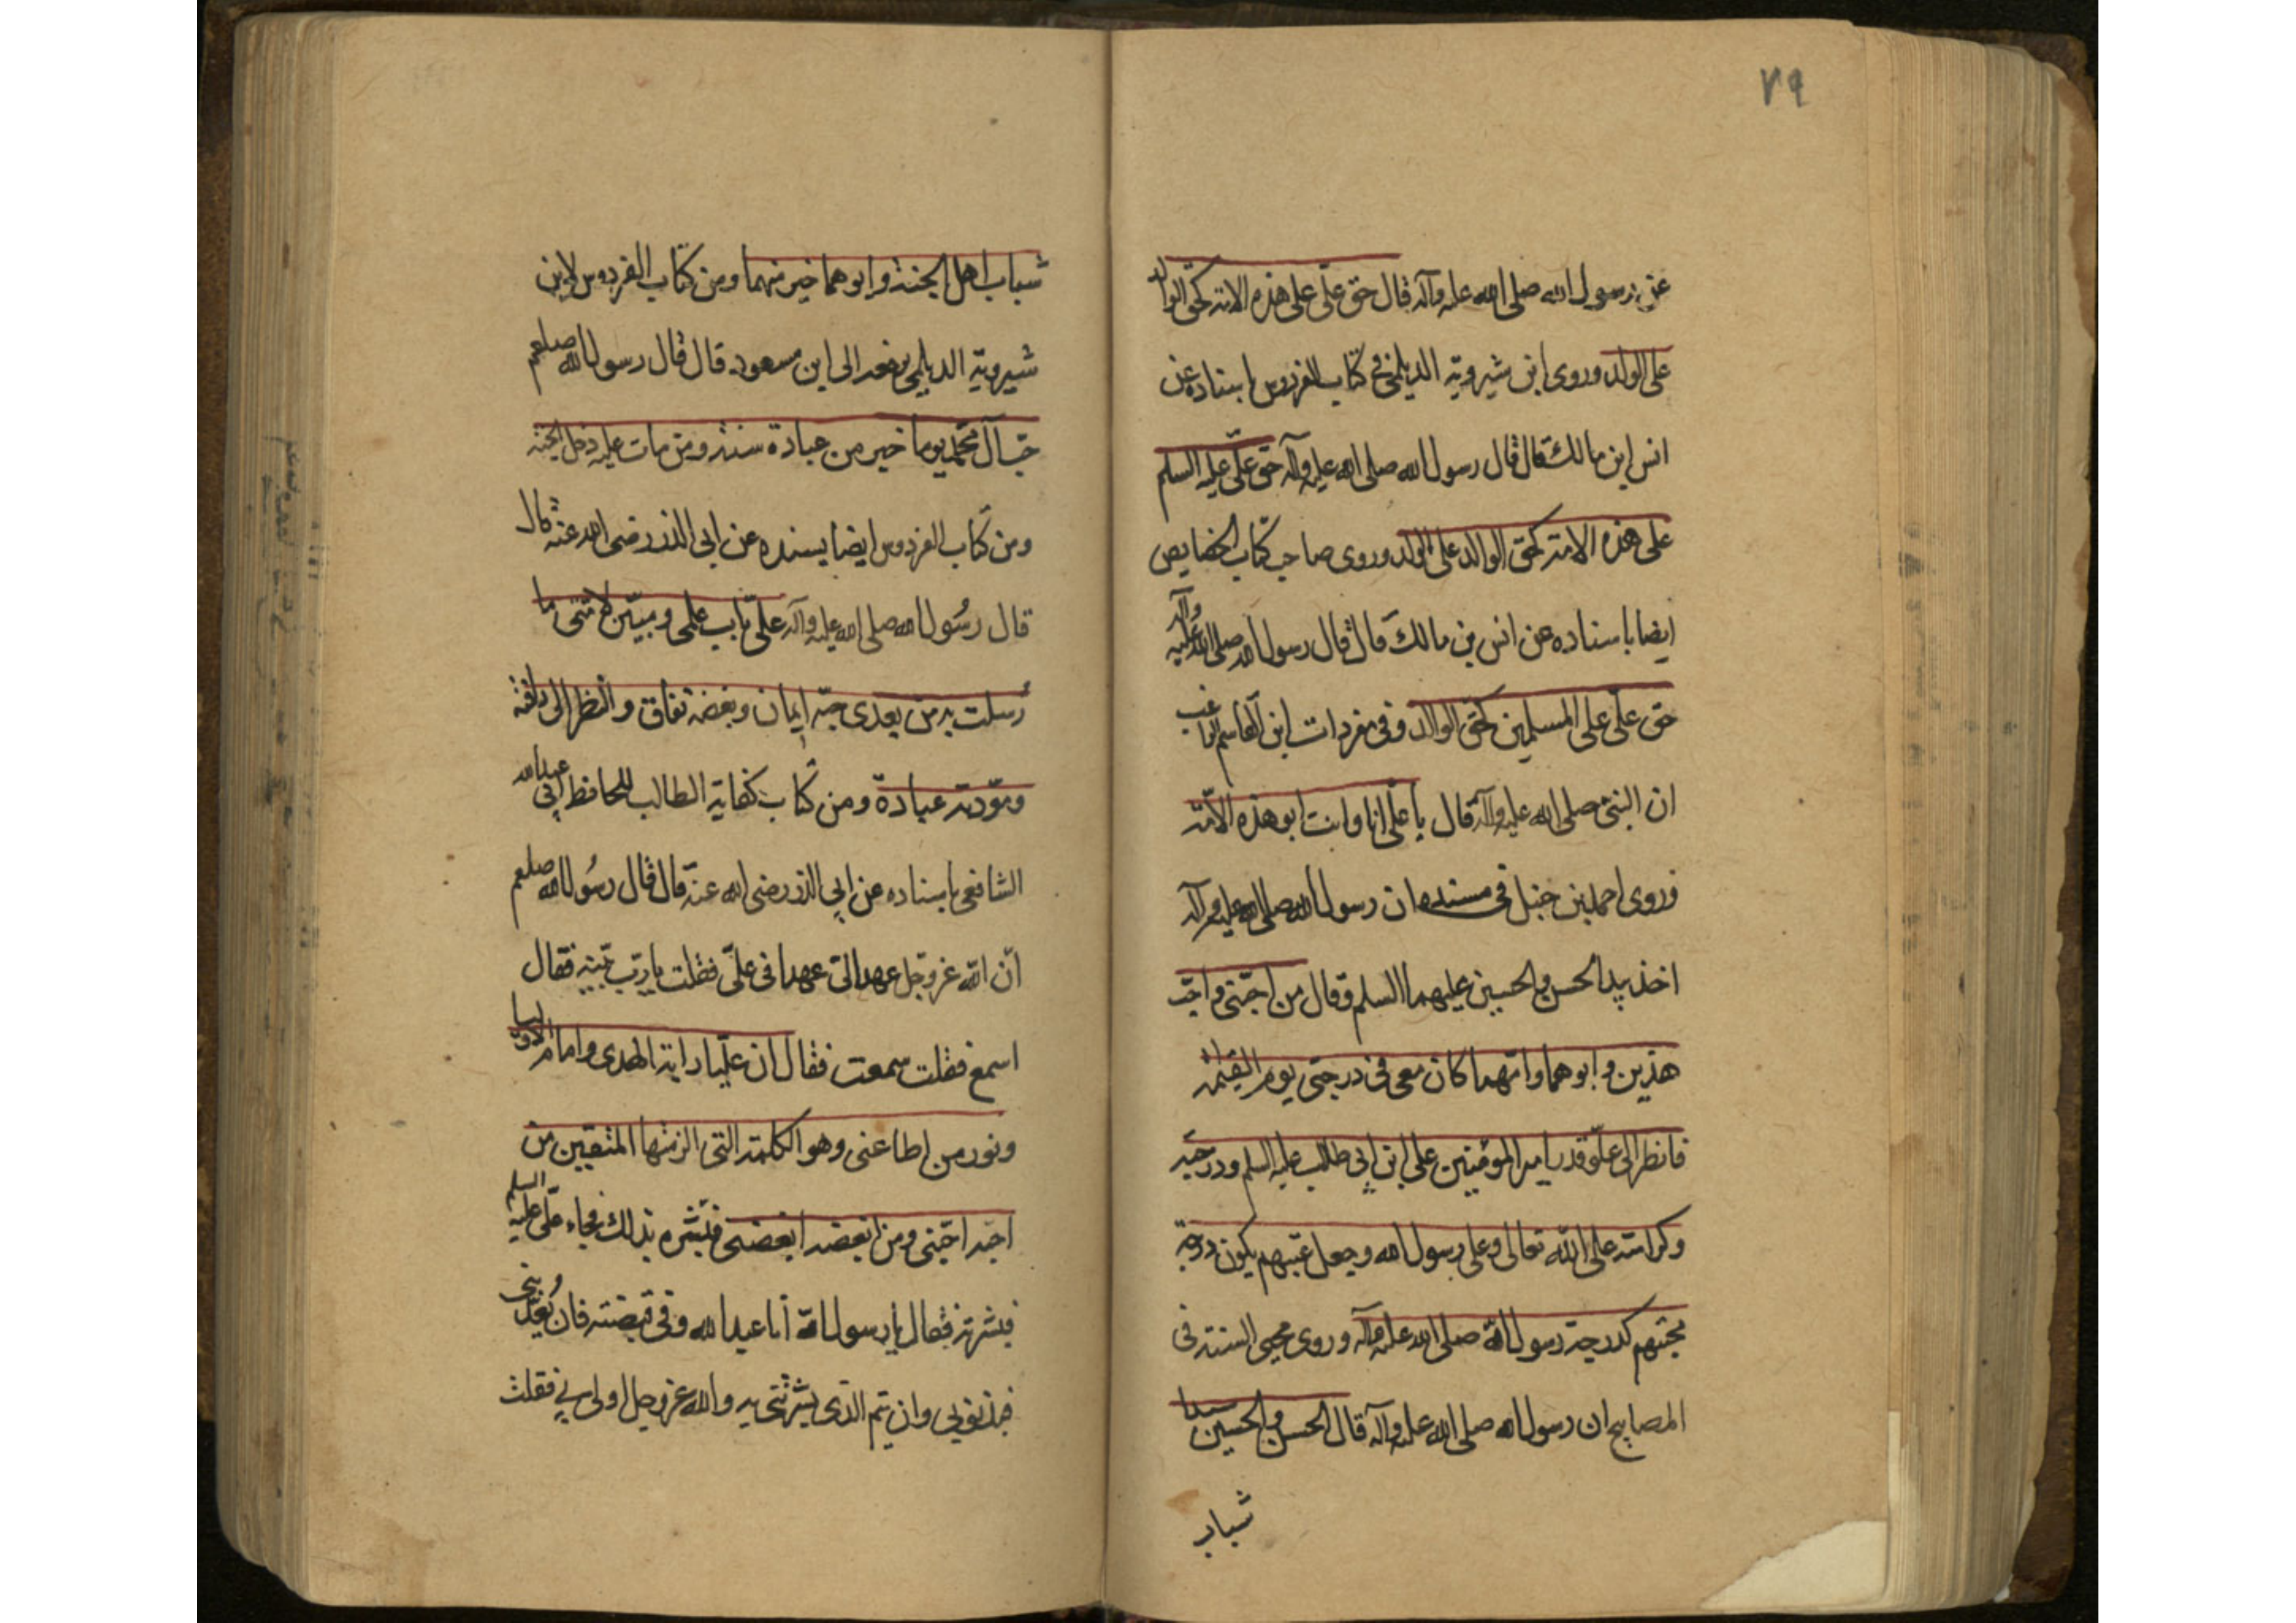 ٧٩
عن رسول الله صلى الله عليه وآله قال حق علّى على هذه الامته كحق الوالد
على الولد وروى ابن شيرويّه الديلمى فى كتاب الفردوس باسناده عن
انس ابن مالك قال قال رسول الله صلى الله عليه وآله حق علّى عليه السلم
على هذه الامته كحق الوالد على الولد وروى صاحب كتاب الخصايص
ايضا باسناده عن انس بن مالك قال قال رسول الله صلى الله عليه وآله
حق علّى على المسلمين كحق الوالد وفى مفردات ابن القاسم الراغب
ان النبى صلى الله عليه وآله قال يا علّى انا وانت ابو هذه الامّته
وروى احمد بن حنبل فى مسنده ان رسول الله صلى الله عليه وآله
اخذ بيد الحسن والحسين عليهما السلم وقال من احبّنى واحبّ
هذين وابوهما وامّهما كان معى فى درجتى يوم القيٰمة
فانظر الى علّو قدر امير المؤمنين على ابن ابى طالب عليه السلم ودرجته
وكرامته على الله تعالى وعلى رسول الله وجعل محبّيهم يكون درجة
محبّتهم كدرجة رسول الله صلى الله عليه وآله وروى محيى السنته فى
المصابيح ان رسول الله صلى الله عليه وآله قال الحسن والحسين سيدا
شباب
شباب اهل الجنة وابوهما خير منهما ومن كتاب الفردوس لابن
شيرويّه الديلمى يرفعه الى ابن مسعود قال قال رسول الله صلعم
حبّ آل محمّد يوما خير من عبادة سنته ومن مات عليه دخل الجنه
ومن كتاب الفردوس ايضا يسنده عن ابى الذر رضى الله عنه قال
قال رسُول الله صلى الله عليه وآله علّى باب علمى ومبيّن لامّتى ما
رُسلت به من بعدى حبّه ايمان وبغضه نفاق والنظر الى رافة
ومودّته عبادة ومن كتاب كفاية الطالب للحافظ ابى عبد الله
الشافعى باسناده عن ابى الذر رضى الله عنه قال قال رسُول الله صلعم
انّ الله عزوجّل عهد الىّ عهدا فى علّى فقلت يا ربّ بيّنه فقال
اسمع فقلت سمعت فقال ان علّيا راية الهدى وامام الاوليا
ونور من اطاعنى وهو الكلمته التى الزمتها المتقين من
احبّه احبّنى ومن ابغضه ابغضنى فبشّره بذلك فجاء علّى عليه السلم
فبشرته فقال يا رسول الله انا عبد الله وفى قبضته فان يُعذّبنى
فبذنوبى وان يتم الذى بشّرتنى به والله عزوجل اولى بى فقلت